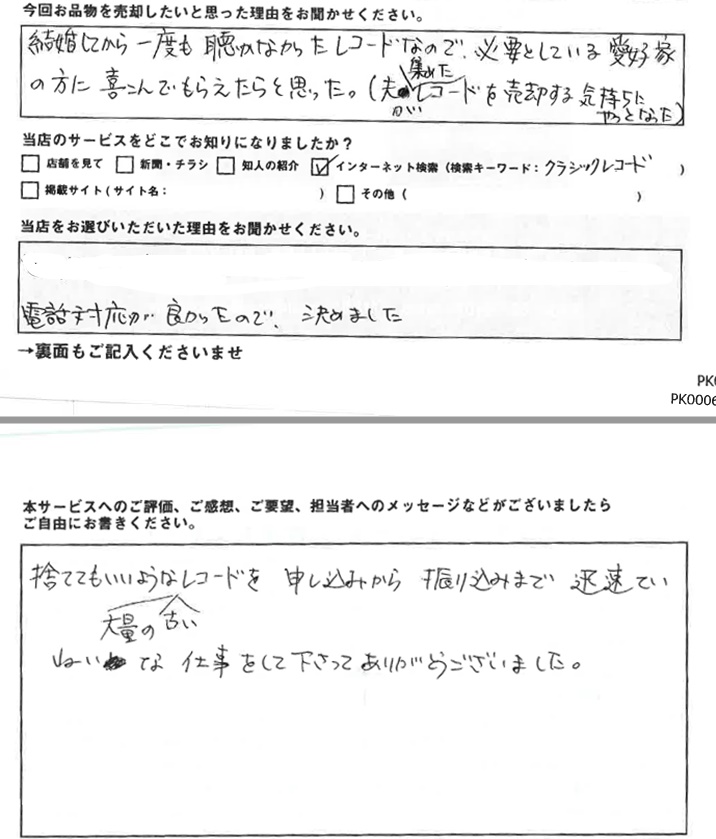 今回お品物を売却したいと思った理由をお聞かせください。
結婚してから一度も聴かなかったレコードなので、必要としている愛好家
の方に喜こんでもらえたらと思った。(夫が集めたレコードを売却する気持ちに
やっとなった)
当店のサービスをどこでお知りになりましたか?
□店舗を見て □新聞・チラシ □知人の紹介 ☑インターネット検索(検索キーワード:クラシックレコード )
□掲載サイト(サイト名: ) □その他( )
当店をお選びいただいた理由をお聞かせください。
電話対応が良かったので、決めました
→裏面もご記入くださいませ
PK0006
本サービスへのご評価、ご感想、ご要望、担当者へのメッセージなどがございましたら
ご自由にお書きください。
捨ててもいいような大量の古いレコードを 申し込みから 振り込みまで 迅速てい
ねいな 仕事をして下さってありがとうございました。